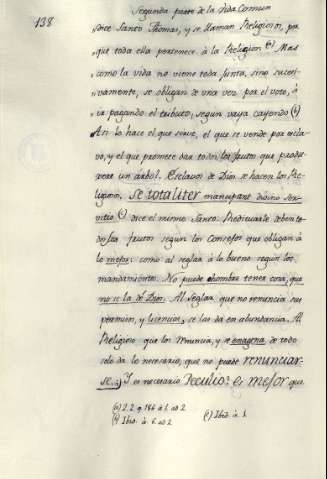 138
Segunda parte de la Vida Comun
dice Santo Thomas, y se llaman Religiosos, por
que toda ella pertenece à la Religion (a) Mas
como la vida no viene toda junta, sino succesi-
vamente, se obligan de una vez por el voto, à
ir pagando el tributo, segun vaya cayendo (b)
Asi lo hace el que sirve, el que se vende por escla-
vo, y el que promete dar todos los frutos que produ-
xere un arbol. Esclavos de Dios se hacen los Re-
ligiosos. Se totaliter mancipant divino ser-
vitio (c) dice el mismo Santo.
dos los frutos segun los Consejos que obligan à
lo mejor: como al seglar à lo bueno segun los
mandamientos. No puede hombre tener cosa, que
no sea de Dios. Al seglar que no renuncia sus
permison, y licencias, se las da en abundancia. Al
Religioso que los renuncia, y se enagena de todo
solo da lo necesario, que no puede renunciar-
se. Y es necesario Peculio? es mejor que
(a) 2. 2. q. 186 à 1. ad 2
(b) Ibid. à. 6. ad 2
(c) Ibid. à 1.